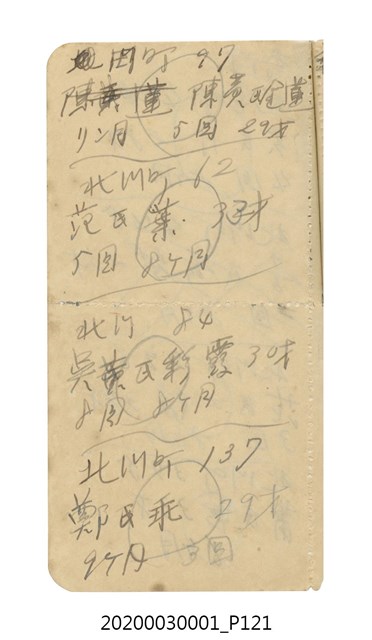 田町 97
陳黄氏蓮
リン月 5回 29才
北川町 62
范氏葉 33才
5回 8ケ月
北川 84
吳黄氏彩霞 30才
8回 8ケ月
北川町 137
鄭氏乖 29才
9ケ月 5回
20200030001_P121